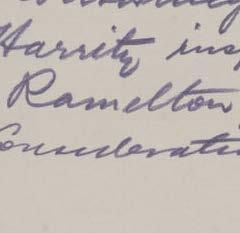 Harrity insp
Ramelton
Consideratio